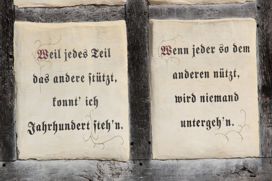 Weil jedes Teil
das andere stützt,
konnt' ich
Jahrhundert steh'n.
Wenn jeder so dem
anderen nützt,
wird niemand
untergeh'n.